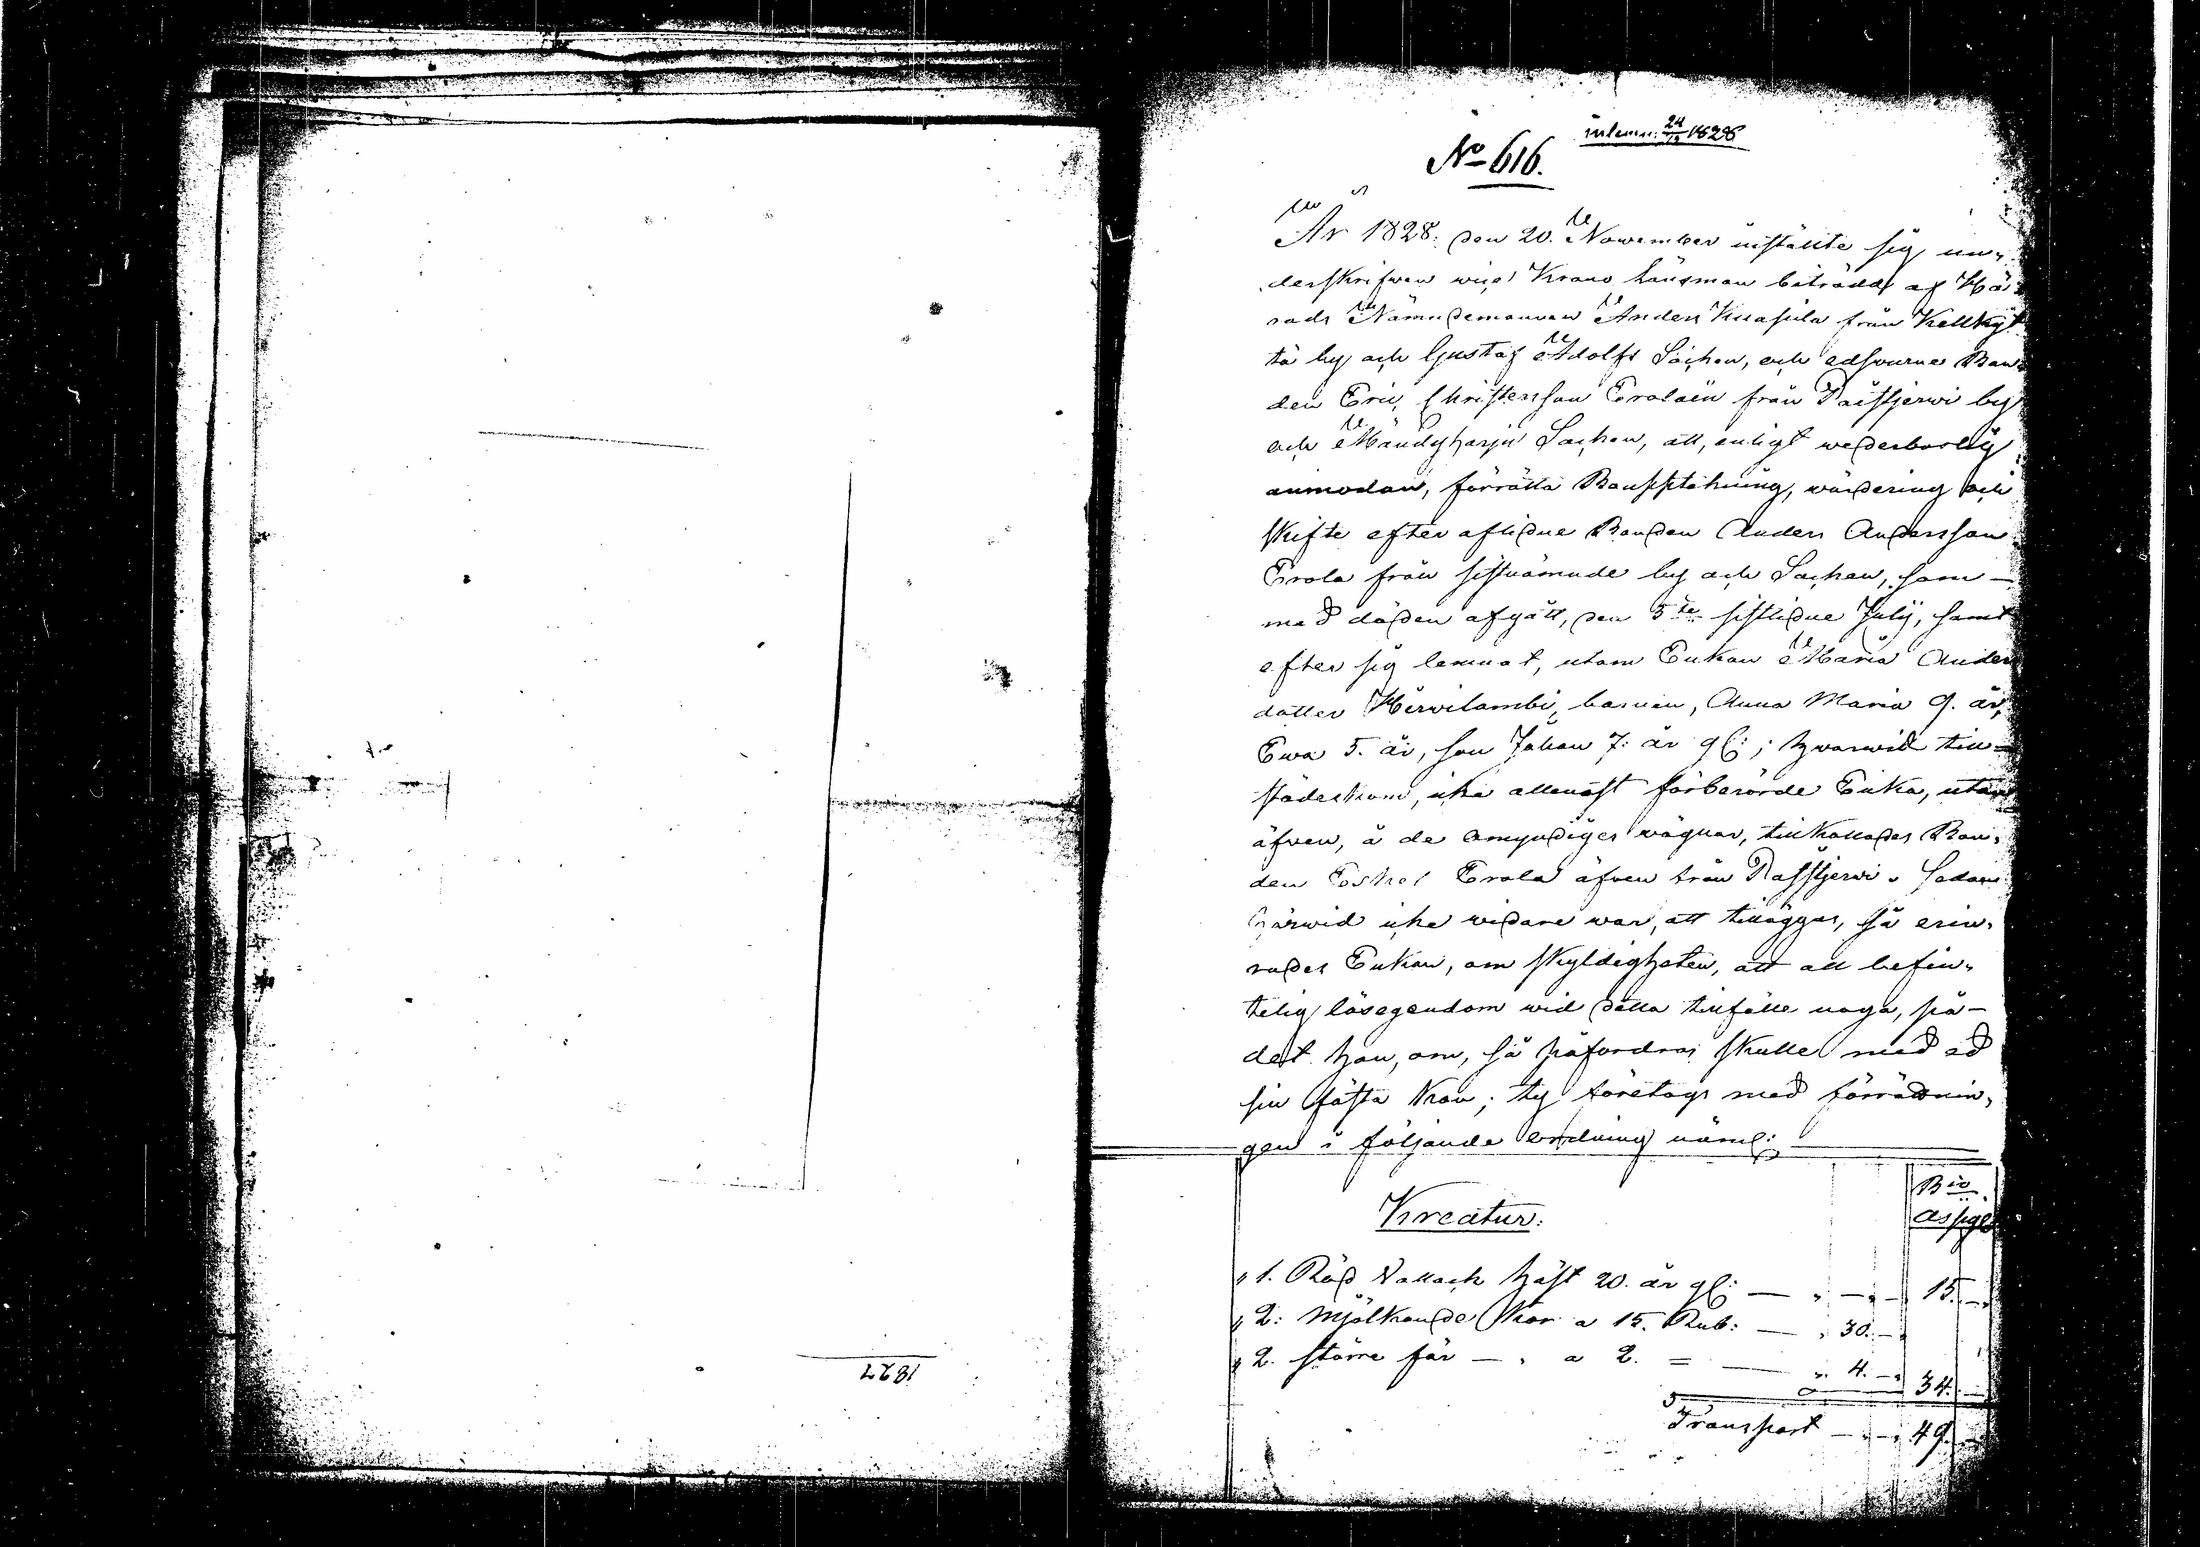 1827
inlemn: 24/12 1828
No 616.
År 1828. den 20. November instälte sig un,,
derskrifven wice Krono länsman biträdd af Hä,,
rads Nämndemannen Anders Knasila från Kellky,,
tä by och Gustaf Adolfs Sochen, och edsvurne Bon,,
den Eric Christersson Erolain från Paistjerwi by
och Mändyharju Sochen, att, enligt wederborlig
anmodan, förrätta Boupptekning, wärdering och
skifte efter aflidne Bonden Anders Andersson
Erola från sistnämnde by och Sochen, som —
med döden afgått, den 5te sistlidne July, samt
efter sig lemnat, utom Enkan Maria Anders
dotter Hirvilambi, barnen, Anna Maria 9. år,
Ewa 5. år, son Johan 7: år gl:; hvarwid till=
städeskom, icke allenast förberörde Enka, utan
äfven, å de omyndiges vägnar, tillkallades Bon,,
den Eskel Erola äfven från Paistjerwi. Sedan
härwid icke widare war, att tillägges, så erin,,
rades Enkan, om skyldigheten, att all befin,,
telig lösegendom wid detta tillfälle uppge, på—
det hon, om, så påfordras skulle med ed
sin fästa kan; ty företogs med förrättnin,,
gen i följande ordning näml:
Kreatur:
Bco
Assigt
1. Röd Vallach häst 20. år gl: — 15. —
2: Mjölkande Kor a 15. Rub: — 30. —
2. större får — a 2. = — 4. — 34. —
Transport — 49. —